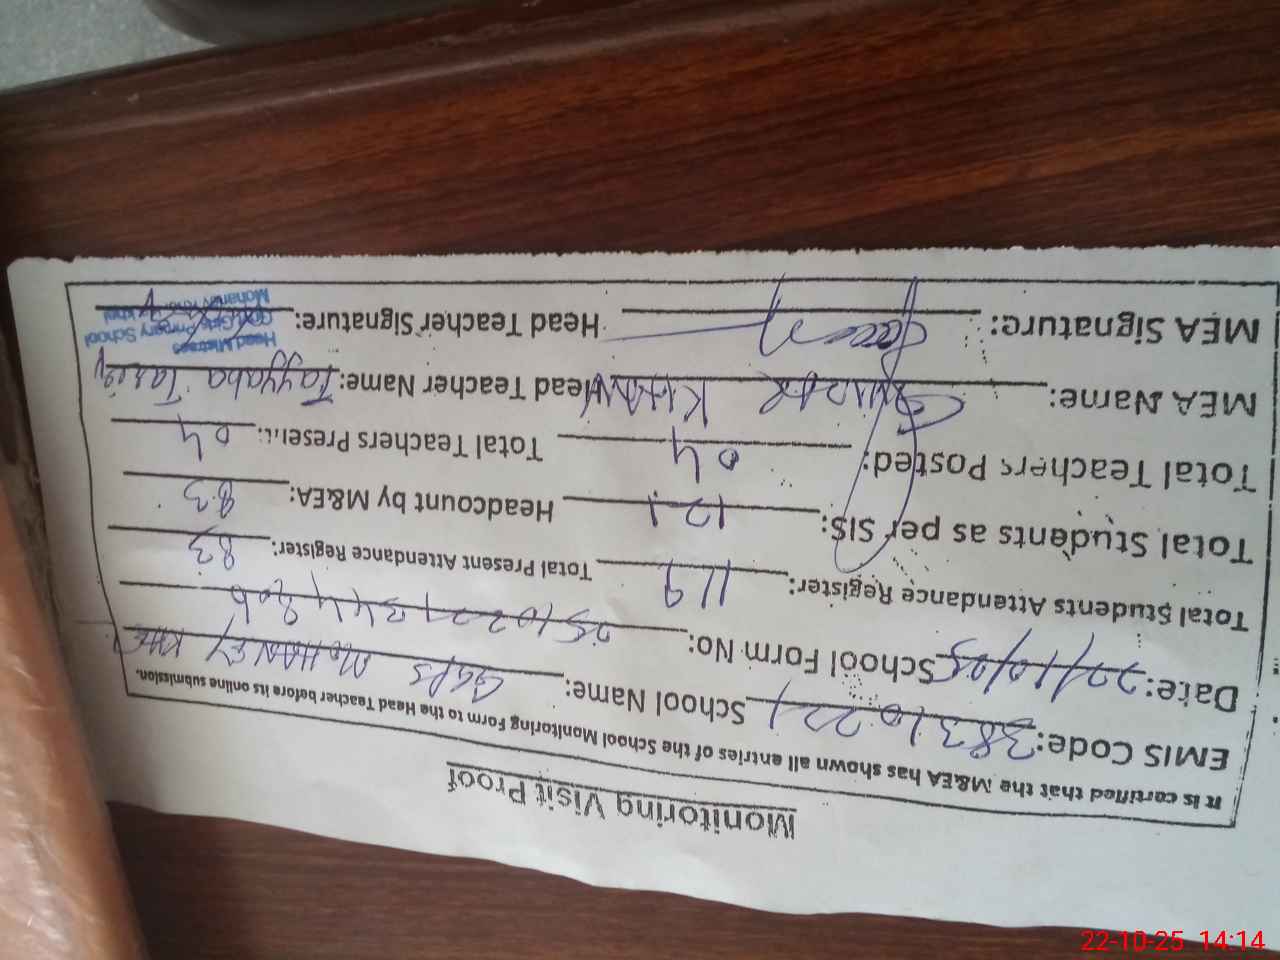 Monitoring Visit Proof
It is certified that the M&EA has shown all entries of the School Monitoring Form to the Head Teacher before its online submission.
EMIS Code: 38310221 School Name: GGPS MOHANEY KHE
Date: 22/10/25 School Form No: 2510221344806
Total Students Attendance Register: 119 Total Present Attendance Register: 83
Total Students as per SIS: 121 Headcount by M&EA: 83
Total Teachers Posted: 04 Total Teachers Present: 04
MEA Name: KHAN Head Teacher Name: Tayyaba
MEA Signature: Head Teacher Signature:
Head Mistress
Govt. Girls Primary School
22-10-25 14:14